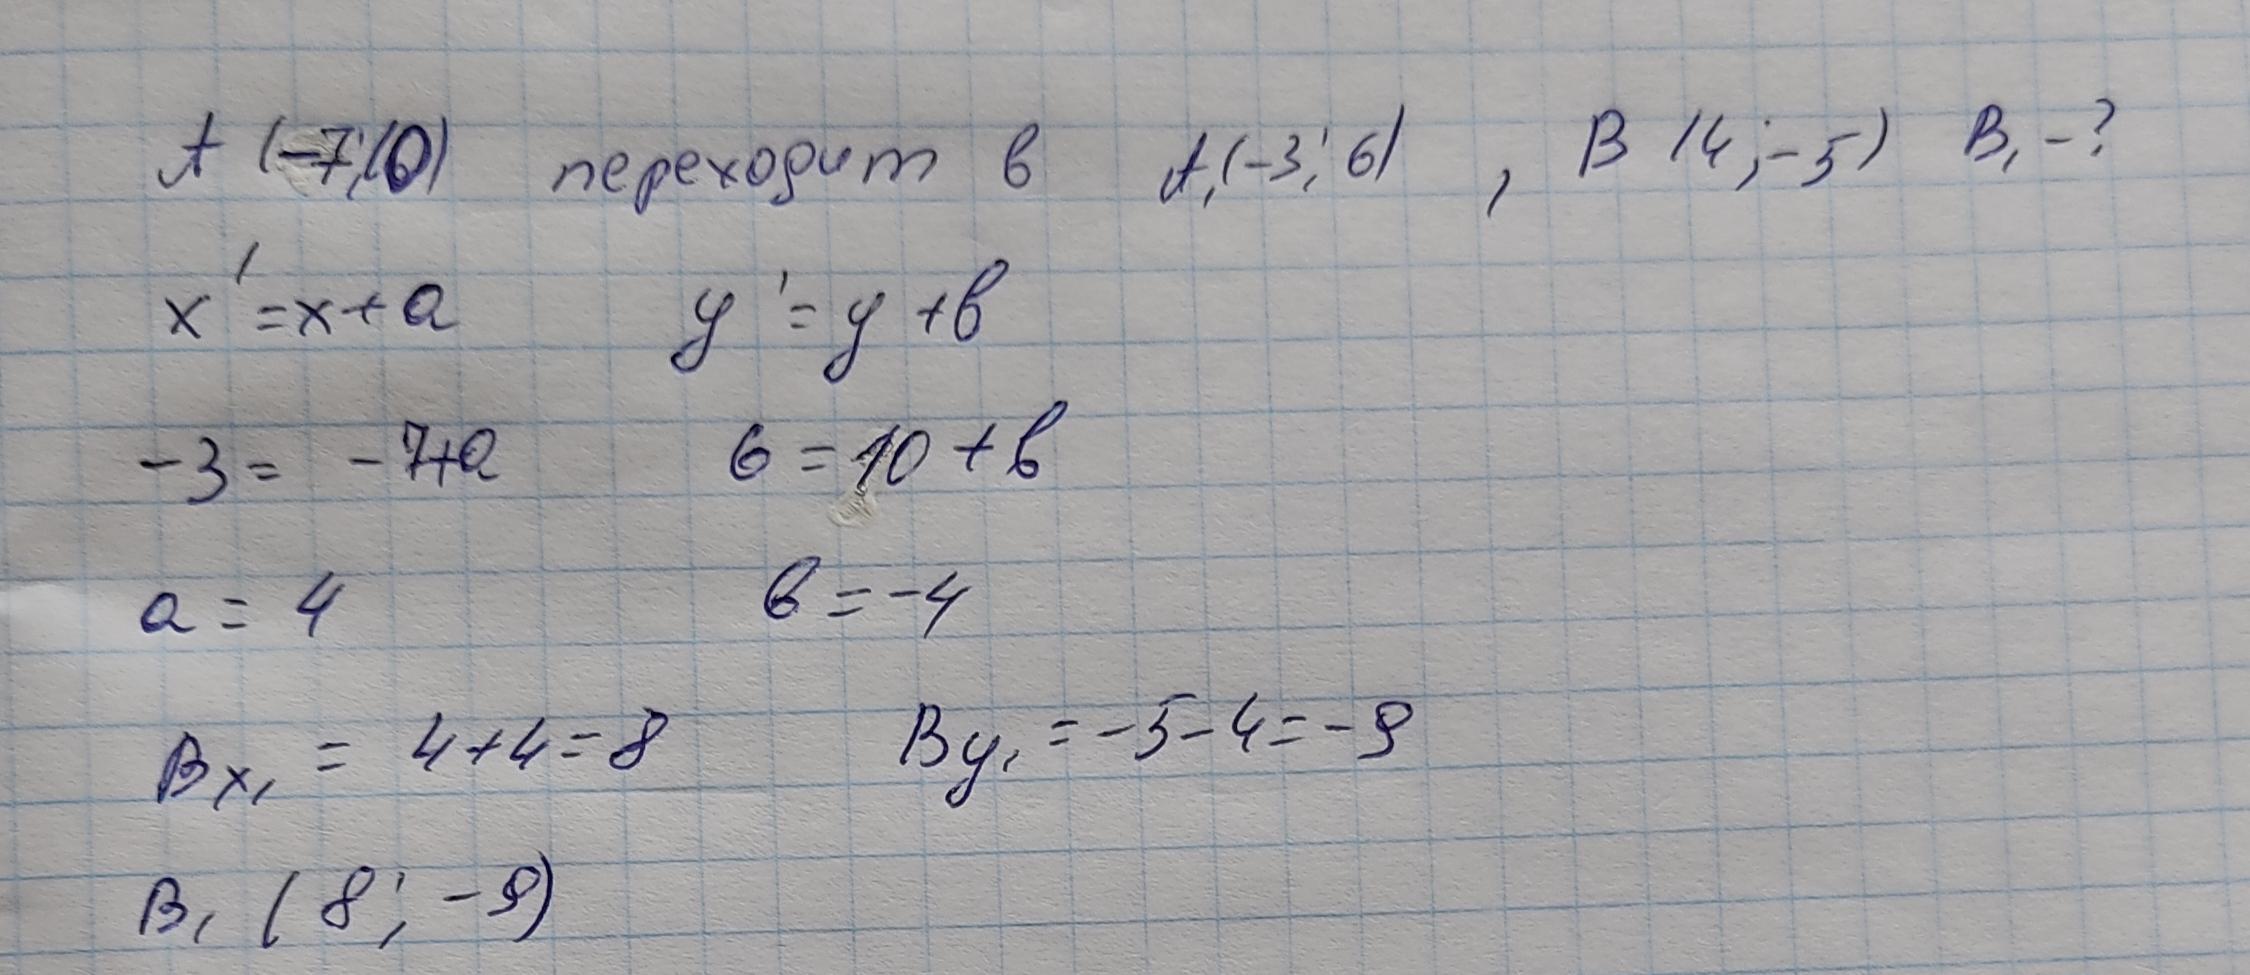 A (-7;10) переходит в A₁(-3; 6) , B (4;-5) B₁ -?
x' = x + a y' = y + в
-3 = -7+a 6 = 10 + в
a = 4 в = -4
Bx₁ = 4+4=8 By₁ = -5-4=-9
B₁ (8; -9)